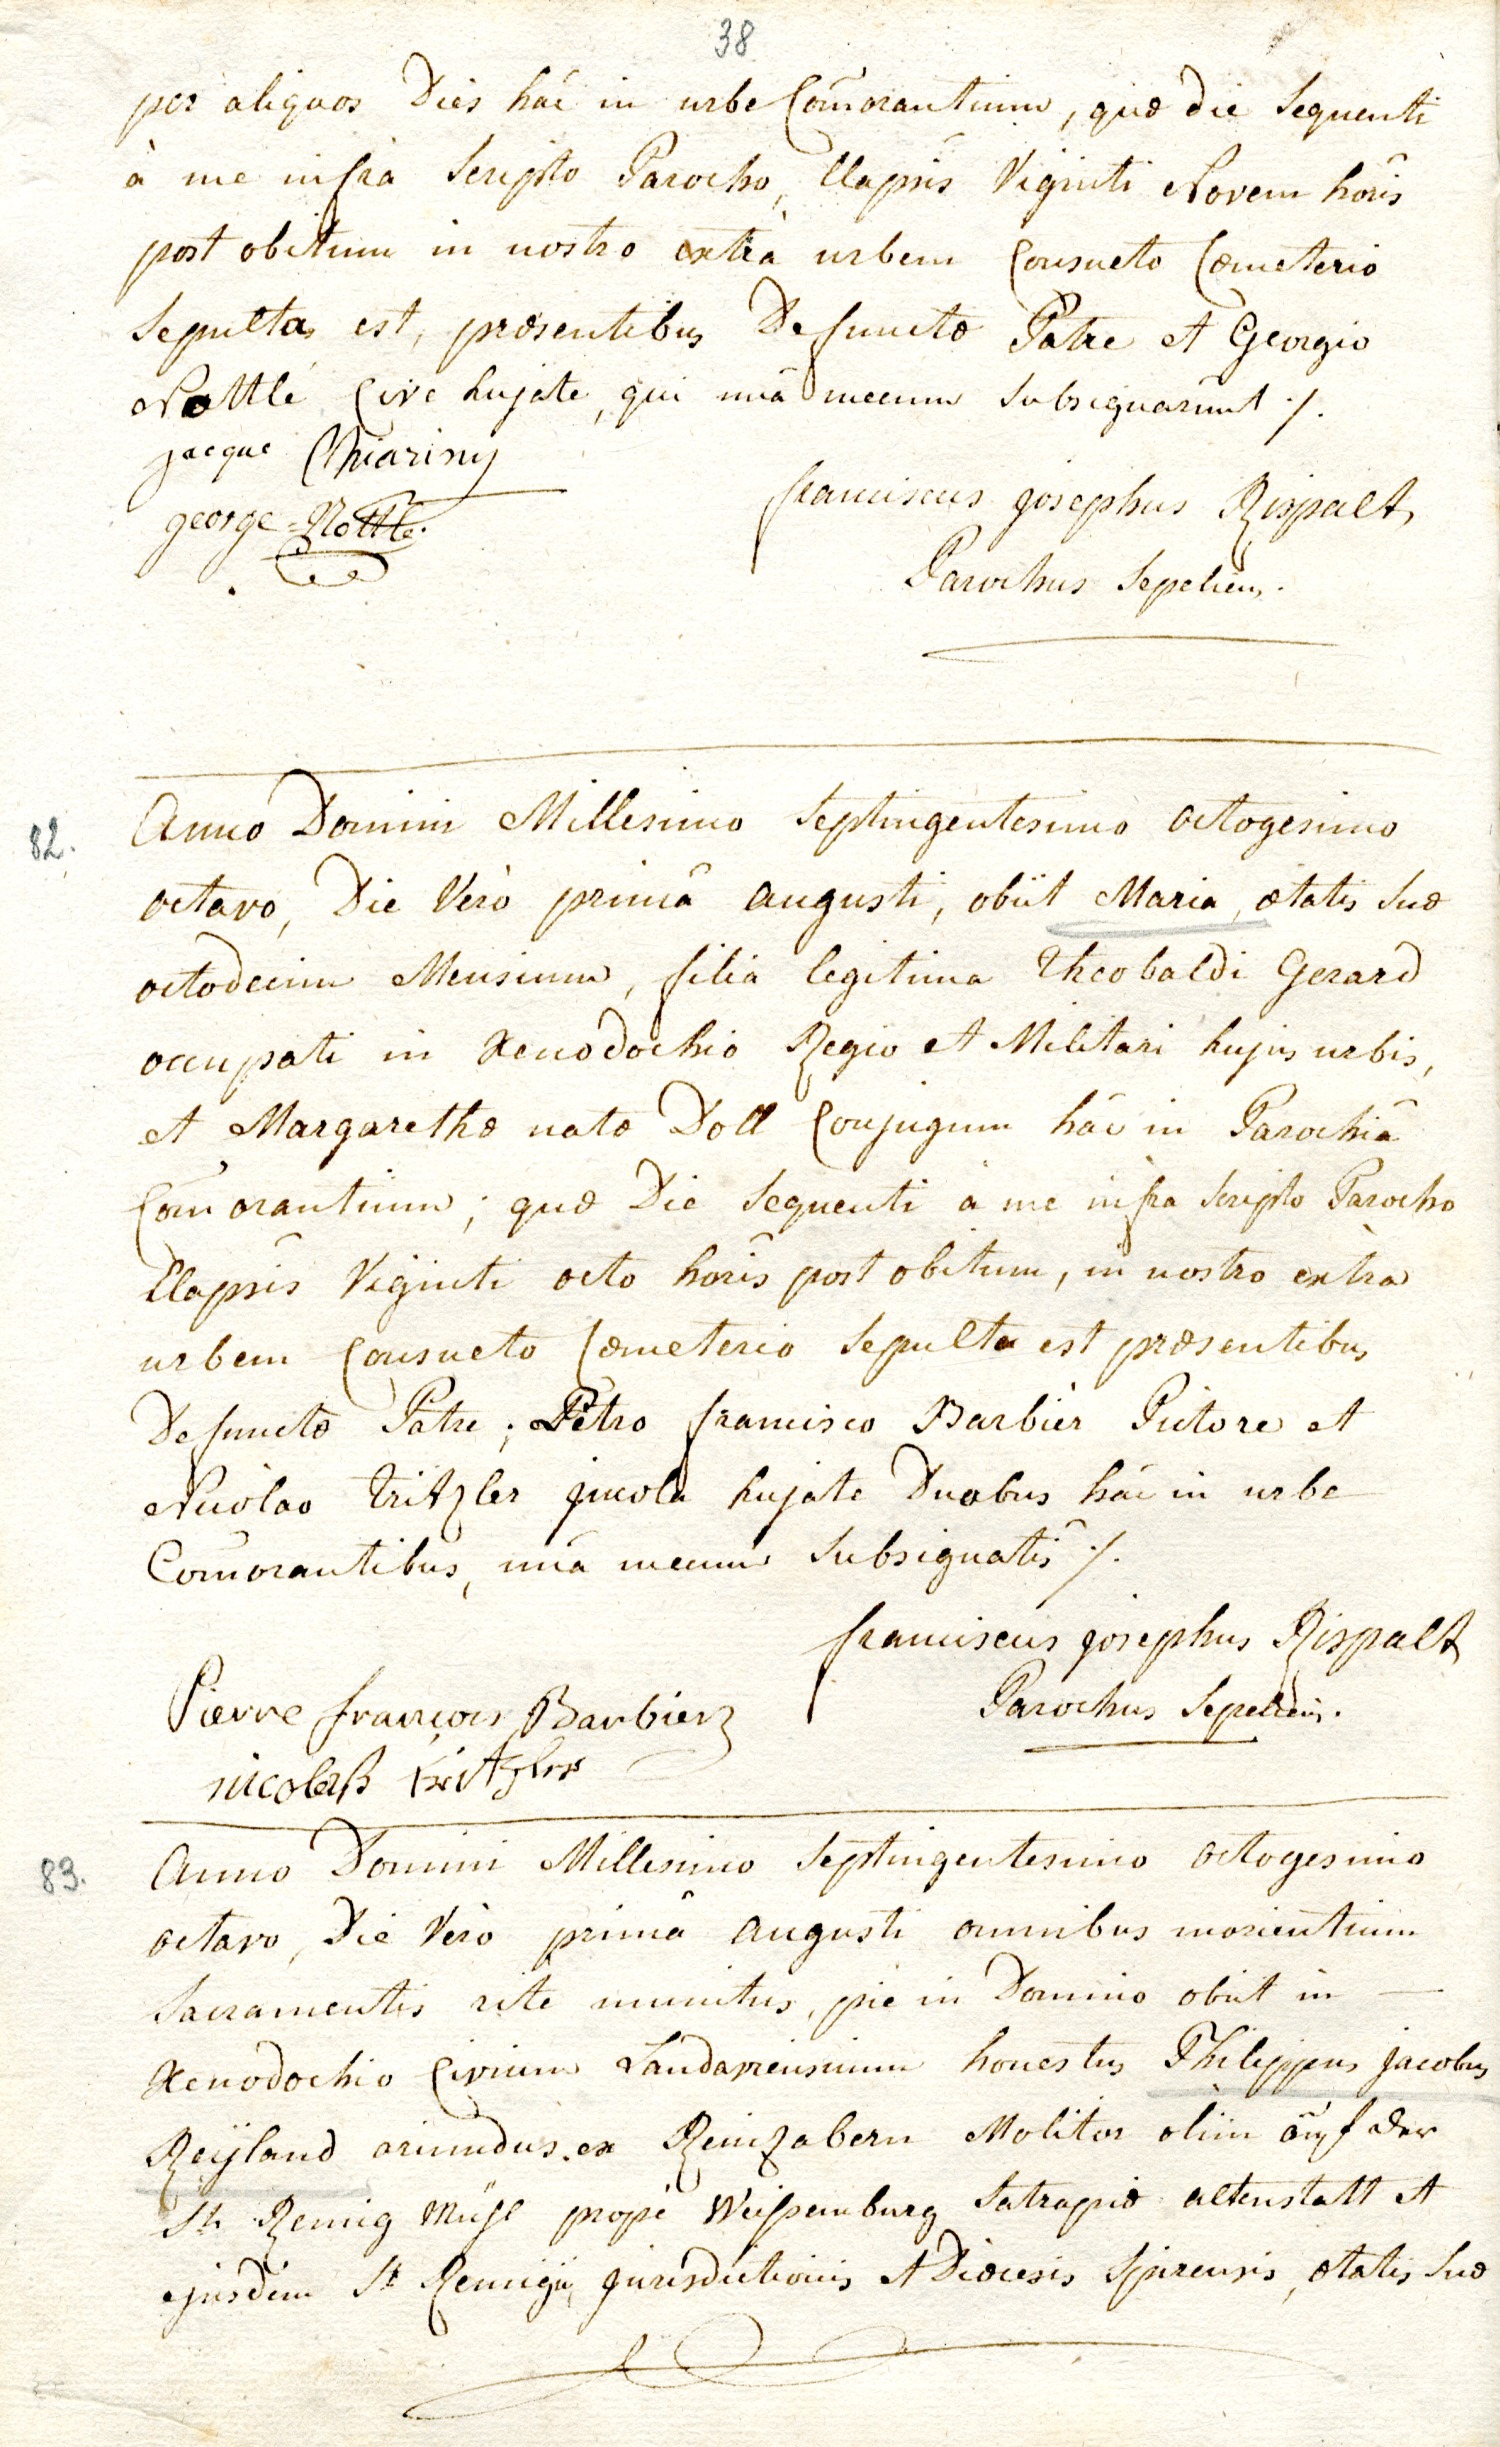 38
per aliquos Dies hâc in urbe Com̃orantium, quæ die Sequenti
à me infrà Scripto Parocho, Elapsis Viginti Novem horis
post obitum in nostro extrà urbem Consueto Cœmeterio
Sepulta est, præsentibus Defunctæ Patre et Georgio
Nottle Cive hujate, qui unà mecum Subsignarunt ./.
jacque Chiariny
george Nottle.
franciscus josephus Rispalt
Parochus Sepeliens.
82.
Anno Domini Millesimo Septingentesimo octogesimo
octavo, Die Verò primâ augusti, obiit Maria, ætatis Suæ
octodecim Mensium, filia legitima Theobaldi Gerard
occupati in Xenodochio Regio et Militari hujus urbis,
et Margarethæ natæ Doll Conjugum hâc in Parochiâ
Com̃orantium; quæ Die Sequenti à me infra Scripto Parocho
Elapsis Viginti octo horis post obitum, in nostro extra
urbem Consueto Cœmeterio Sepulta est præsentibus
Defunctæ Patre, Petro francisco Barbier Pictore et
Nicolao Tritzler jncola hujate Duobus hâc in urbe
Com̃orantibus, unà mecum Subsignatis ./.
franciscus josephus Rispalt
Parochus Sepeliens.
Pierre françois Barbier
nicolaß tritzler
83.
Anno Domini Millesimo Septingentesimo octogesimo
octavo, Die Verò primâ augusti omnibus morientium
Sacramentis rite munitus, piè in Domino obiit in —
Xenodochio Civium Landaviensium honestus Philippus jacobus
Reÿland oriundus ex Reinzabern Molitor olim auf der
St. Remig Mühl propè Weissemburg Satrapiæ altenstatt et
ejusdem St. Remigij, jurisdictionis et Diœcesis Spirensis, ætatis Suæ